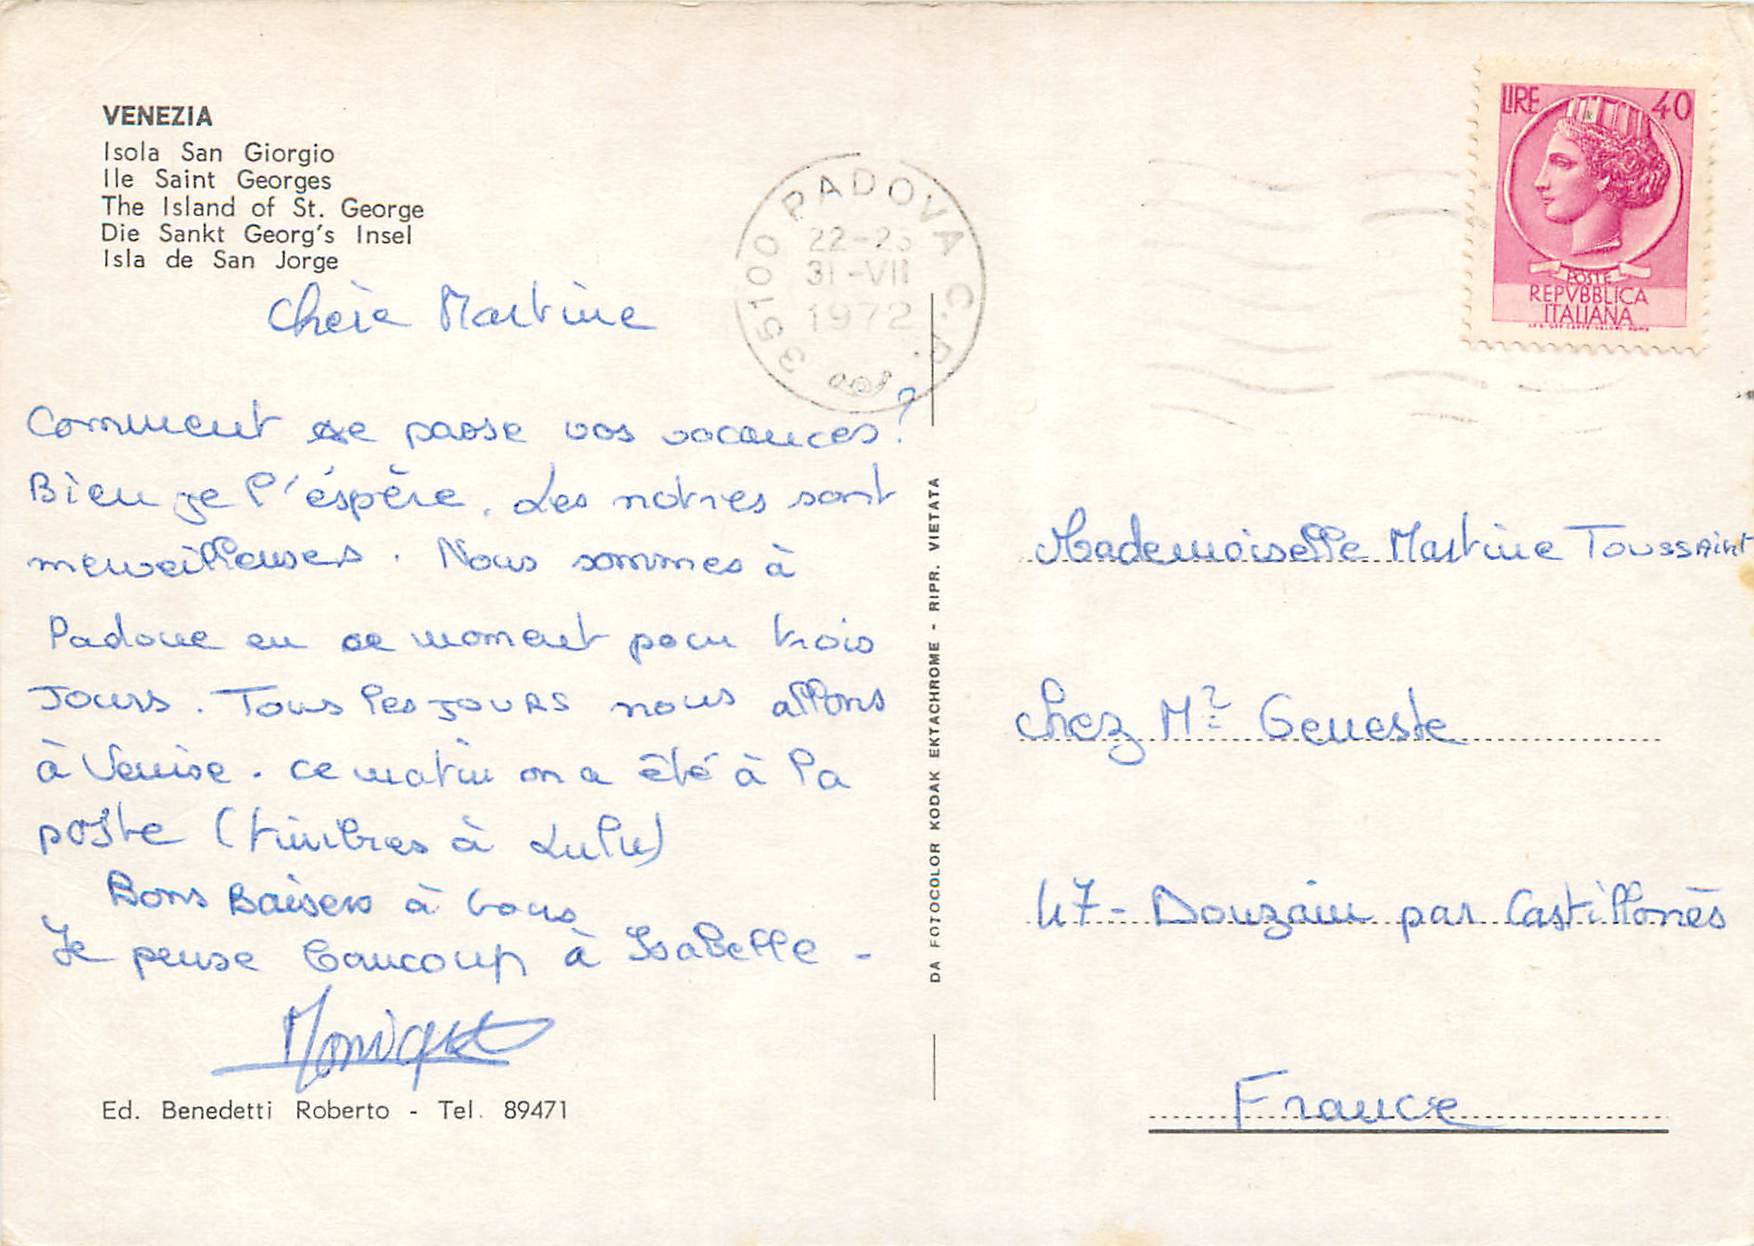 VENEZIA
Isola San Giorgio
Ile Saint Georges
The Island of St. George
Die Sankt Georg's Insel
Isla de San Jorge
Chère Martine
Comment se passe vos vacances?
Bien je l'éspère. Les notres sont
merveilleuses. Nous sommes à
Padoue en ce moment pour trois
Jours. Tous les jours nous allons
à Venise. ce matin on a été à la
poste (timbres à Lulu)
Bons Baisers à vous
Je pense baucoup à Isabelle -
Monique
Ed. Benedetti Roberto - Tel. 89471
DA FOTOCOLOR KODAK EKTACHROME - RIPR. VIETATA
35100 PADOVA C.P.
22-23
31-VII
1972
LIRE 40
POSTE
REPVBBLICA
ITALIANA
Mademoiselle Martine Toussaint
chez Mr Geneste
47- Douzain par Castillonès
France